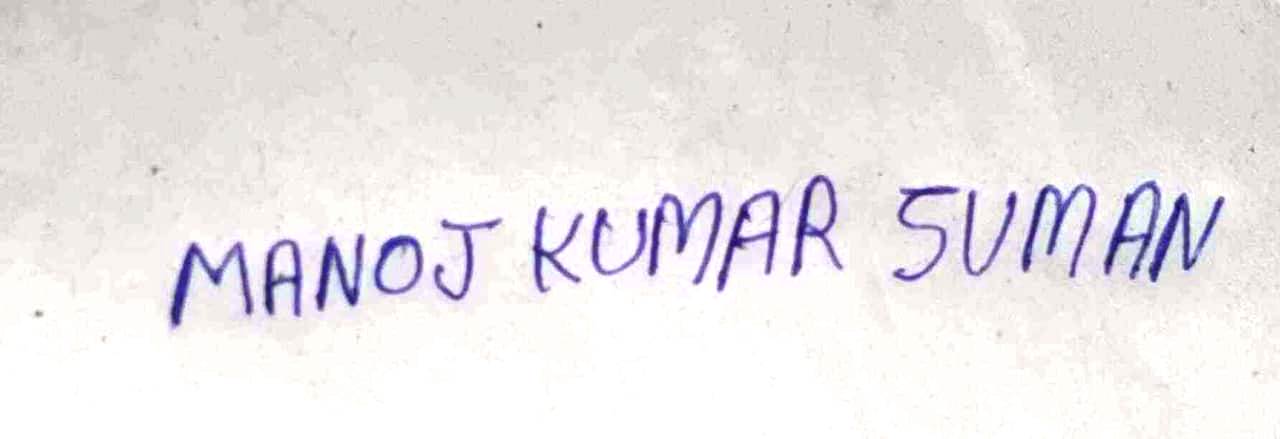 MANOJ KUMAR SUMAN